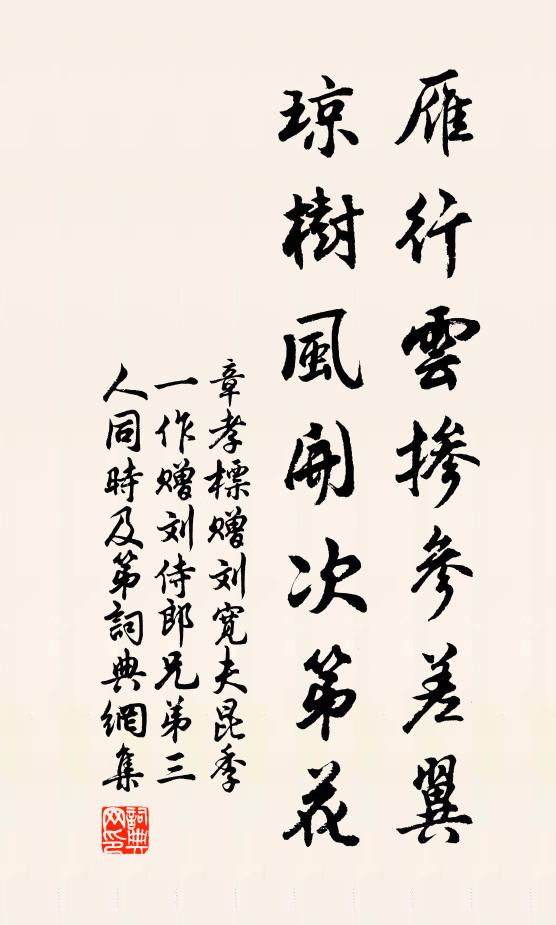 雁行雲掺參差翼
瓊樹風開次第花
章孝標贈刘寬夫昆季
一作贈刘侍郎兄弟三
人同時及第詞典網集
詞典
网印